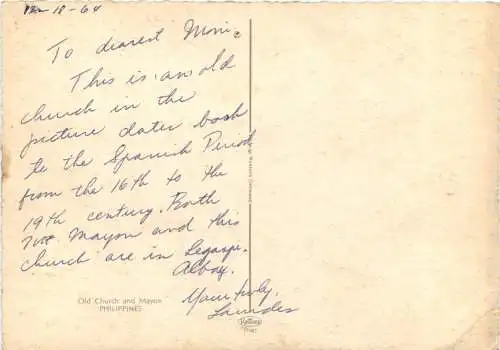 12-18-64
To dearest Moni-
This is an old
church in the
picture dates back
to the Spanish Period
from the 16th to the
19th century. Both
Mayon and this
church are in Legaspi,
Albay.
Yours truly,
Lourdes
Old Church and Mayon
PHILIPPINES